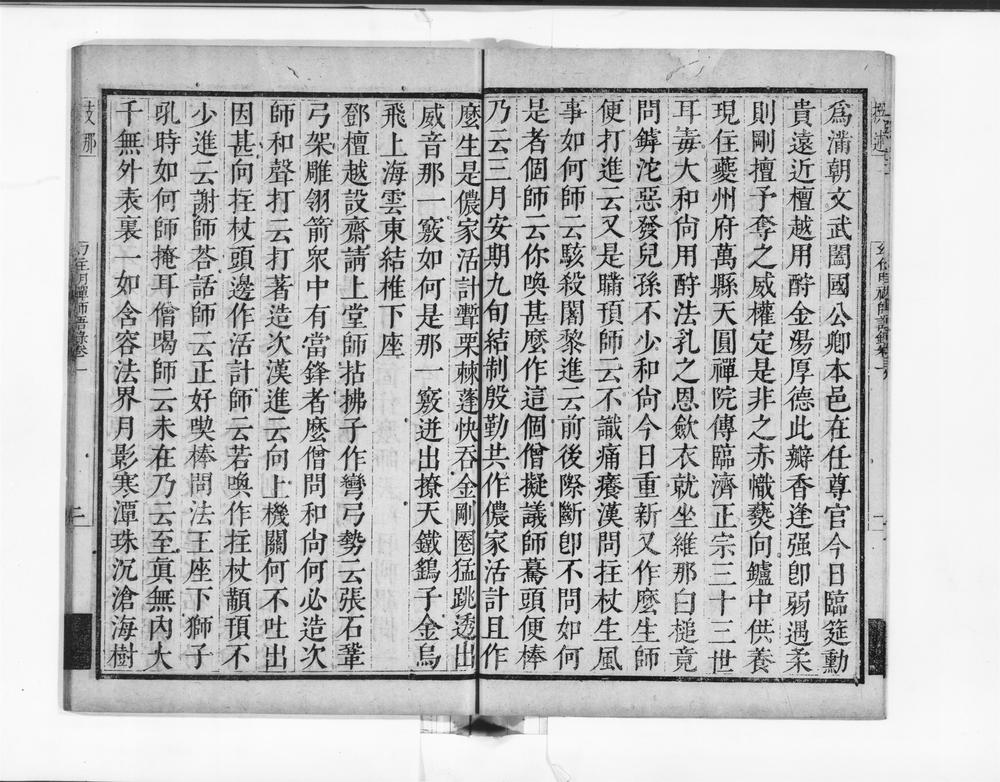 為滿朝文武闔國公卿本邑在任尊官今日臨筵勳
貴遠近檀越用酧金湯厚德此瓣香逢强卽弱遇柔
則剛擅予奪之威權定是非之赤幟爇向鑪中供養
現住夔州府萬縣天圓禪院傳臨濟正宗三十三世
耳毒大和尙用酧法乳之恩歛衣就坐維那白槌竟
問鎼沱惡發兒孫不少和尙今日重新又作麼生師
便打進云又是瞞頇師云不識痛癢漢問拄杖生風
事如何師云駭殺闍黎進云前後際斷卽不問如何
是者個師云你喚甚麼作這個僧擬議師驀頭便棒
乃云三月安期九旬結制殷勤共作儂家活計且作
麼生是儂家活計蹔栗棘蓬快吞金剛圈猛跳透出
威音那一竅如何是那一竅迸出撩天鐵鷂子金烏
飛上海雲東結椎下座
鄧檀越設齋請上堂師拈拂子作彎弓勢云張石鞏
弓架雕翎箭衆中有當鋒者麼僧問和尙何必造次
師和聲打云打著造次漢進云向上機關何不吐出
因甚向拄杖頭邊作活計師云若喚作拄杖顢頇不
少進云謝師荅話師云正好喫棒問法王座下獅子
吼時如何師掩耳僧喝師云未在乃云至眞無內大
千無外表裏一如含容法界月影寒潭珠沉滄海樹
二